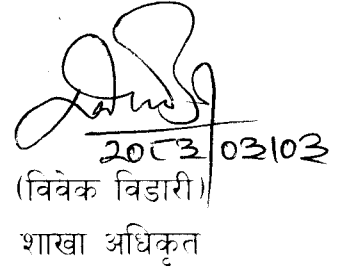 २०८३/०३/०३
(विवेक विडारी)
शाखा अधिकृत